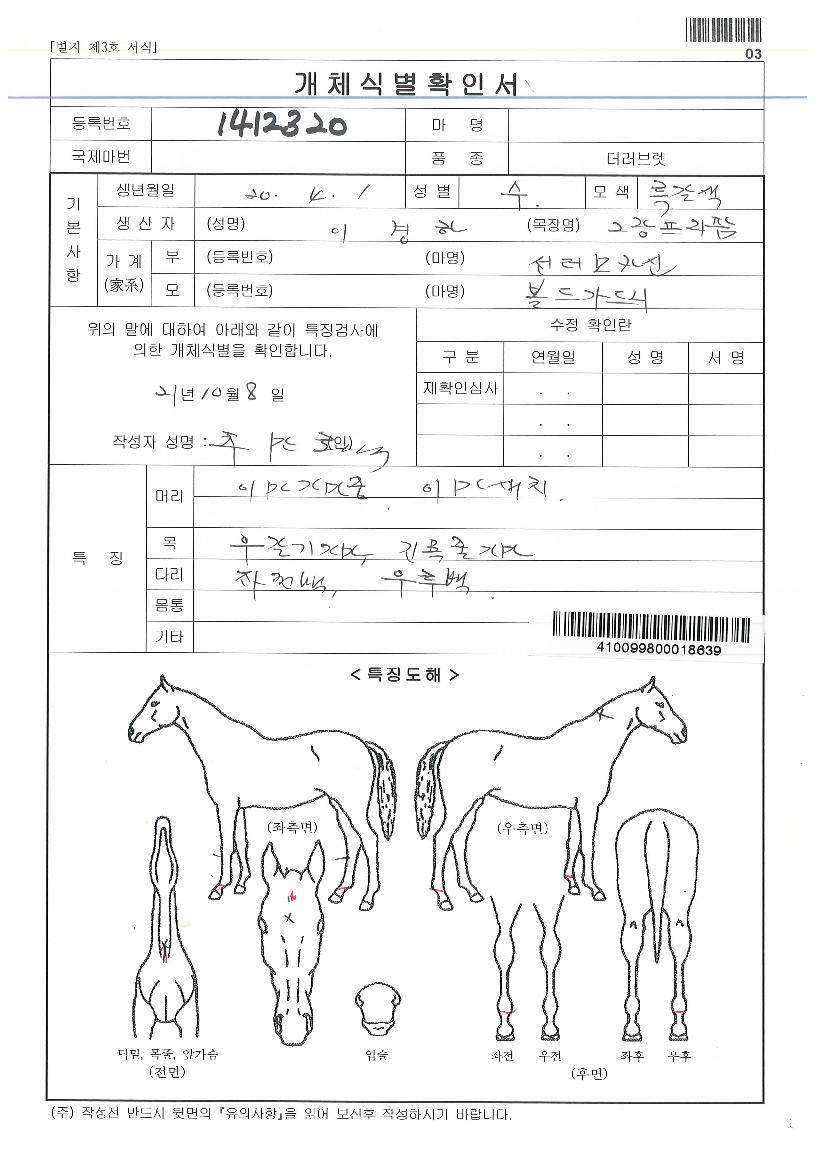 [별지 제3호 서식]
03
개체식별확인서
등록번호 1412320 마 명
국제마번 품 종 더러브렛
기본사항
생년월일 20. 4. 1 성별 수. 모색 흑갈색
생 산 자 (성명) 이 경 하 (목장명)
가 계 (家系) 부 (등록번호) (마명)
모 (등록번호) (마명) 볼드가드시
위의 말에 대하여 아래와 같이 특징검사에
의한 개체식별을 확인합니다.
21년 10월 8일
작성자 성명 : (인)
수정 확인란
구 분 연월일 성 명 서 명
재확인심사 . .
. .
. .
특 징
머리
목 우갈기가마, 긴목줄가마
다리 좌전백, 우후백.
몸통
기타
410099800018639
< 특징도해 >
(좌측면) (우측면)
더밑, 목줄, 앞가슴
(전면)
입술
좌전 우전 좌후 우후
(후면)
(주) 작성전 반드시 뒷면의 『유의사항』을 읽어 보신후 작성하시기 바랍니다.